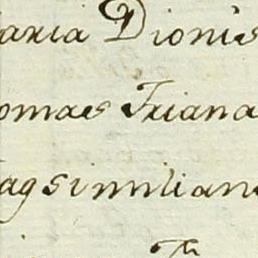 aria Dionis
omas Triana
agsimiliano